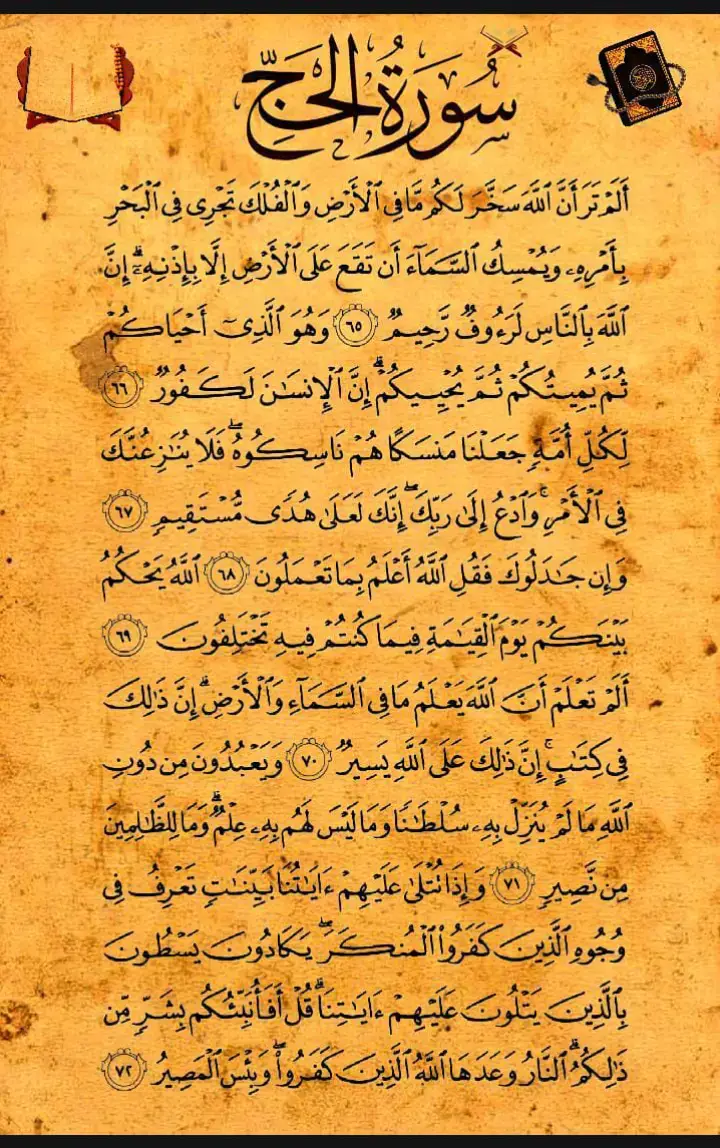 سُورَةُ الحَجِّ
أَلَمْ تَرَ أَنَّ ٱللَّهَ سَخَّرَ لَكُم مَّا فِى ٱلْأَرْضِ وَٱلْفُلْكَ تَجْرِى فِى ٱلْبَحْرِ
بِأَمْرِهِۦ وَيُمْسِكُ ٱلسَّمَآءَ أَن تَقَعَ عَلَى ٱلْأَرْضِ إِلَّا بِإِذْنِهِۦٓ ۗ إِنَّ
ٱللَّهَ بِٱلنَّاسِ لَرَءُوفٌ رَّحِيمٌ ٦٥ وَهُوَ ٱلَّذِىٓ أَحْيَاكُمْ
ثُمَّ يُمِيتُكُمْ ثُمَّ يُحْيِيكُمْ ۗ إِنَّ ٱلْإِنسَٰنَ لَكَفُورٌ ٦٦
لِّكُلِّ أُمَّةٍ جَعَلْنَا مَنسَكًا هُمْ نَاسِكُوهُ ۖ فَلَا يُنَٰزِعُنَّكَ
فِى ٱلْأَمْرِ ۚ وَٱدْعُ إِلَىٰ رَبِّكَ ۖ إِنَّكَ لَعَلَىٰ هُدًى مُّسْتَقِيمٍ ٦٧
وَإِن جَٰدَلُوكَ فَقُلِ ٱللَّهُ أَعْلَمُ بِمَا تَعْمَلُونَ ٦٨ ٱللَّهُ يَحْكُمُ
بَيْنَكُمْ يَوْمَ ٱلْقِيَٰمَةِ فِيمَا كُنتُمْ فِيهِ تَخْتَلِفُونَ ٦٩
أَلَمْ تَعْلَمْ أَنَّ ٱللَّهَ يَعْلَمُ مَا فِى ٱلسَّمَآءِ وَٱلْأَرْضِ ۗ إِنَّ ذَٰلِكَ
فِى كِتَٰبٍ ۚ إِنَّ ذَٰلِكَ عَلَى ٱللَّهِ يَسِيرٌ ٧٠ وَيَعْبُدُونَ مِن دُونِ
ٱللَّهِ مَا لَمْ يُنَزِّلْ بِهِۦ سُلْطَٰنًا وَمَا لَيْسَ لَهُم بِهِۦ عِلْمٌ ۗ وَمَا لِلظَّٰلِمِينَ
مِن نَّصِيرٍ ٧١ وَإِذَا تُتْلَىٰ عَلَيْهِمْ ءَايَٰتُنَا بَيِّنَٰتٍ تَعْرِفُ فِى
وُجُوهِ ٱلَّذِينَ كَفَرُوا۟ ٱلْمُنكَرَ ۖ يَكَادُونَ يَسْطُونَ
بِٱلَّذِينَ يَتْلُونَ عَلَيْهِمْ ءَايَٰتِنَا ۗ قُلْ أَفَأُنَبِّئُكُم بِشَرٍّ مِّن
ذَٰلِكُمُ ۗ ٱلنَّارُ وَعَدَهَا ٱللَّهُ ٱلَّذِينَ كَفَرُوا۟ ۖ وَبِئْسَ ٱلْمَصِيرُ ٧٢